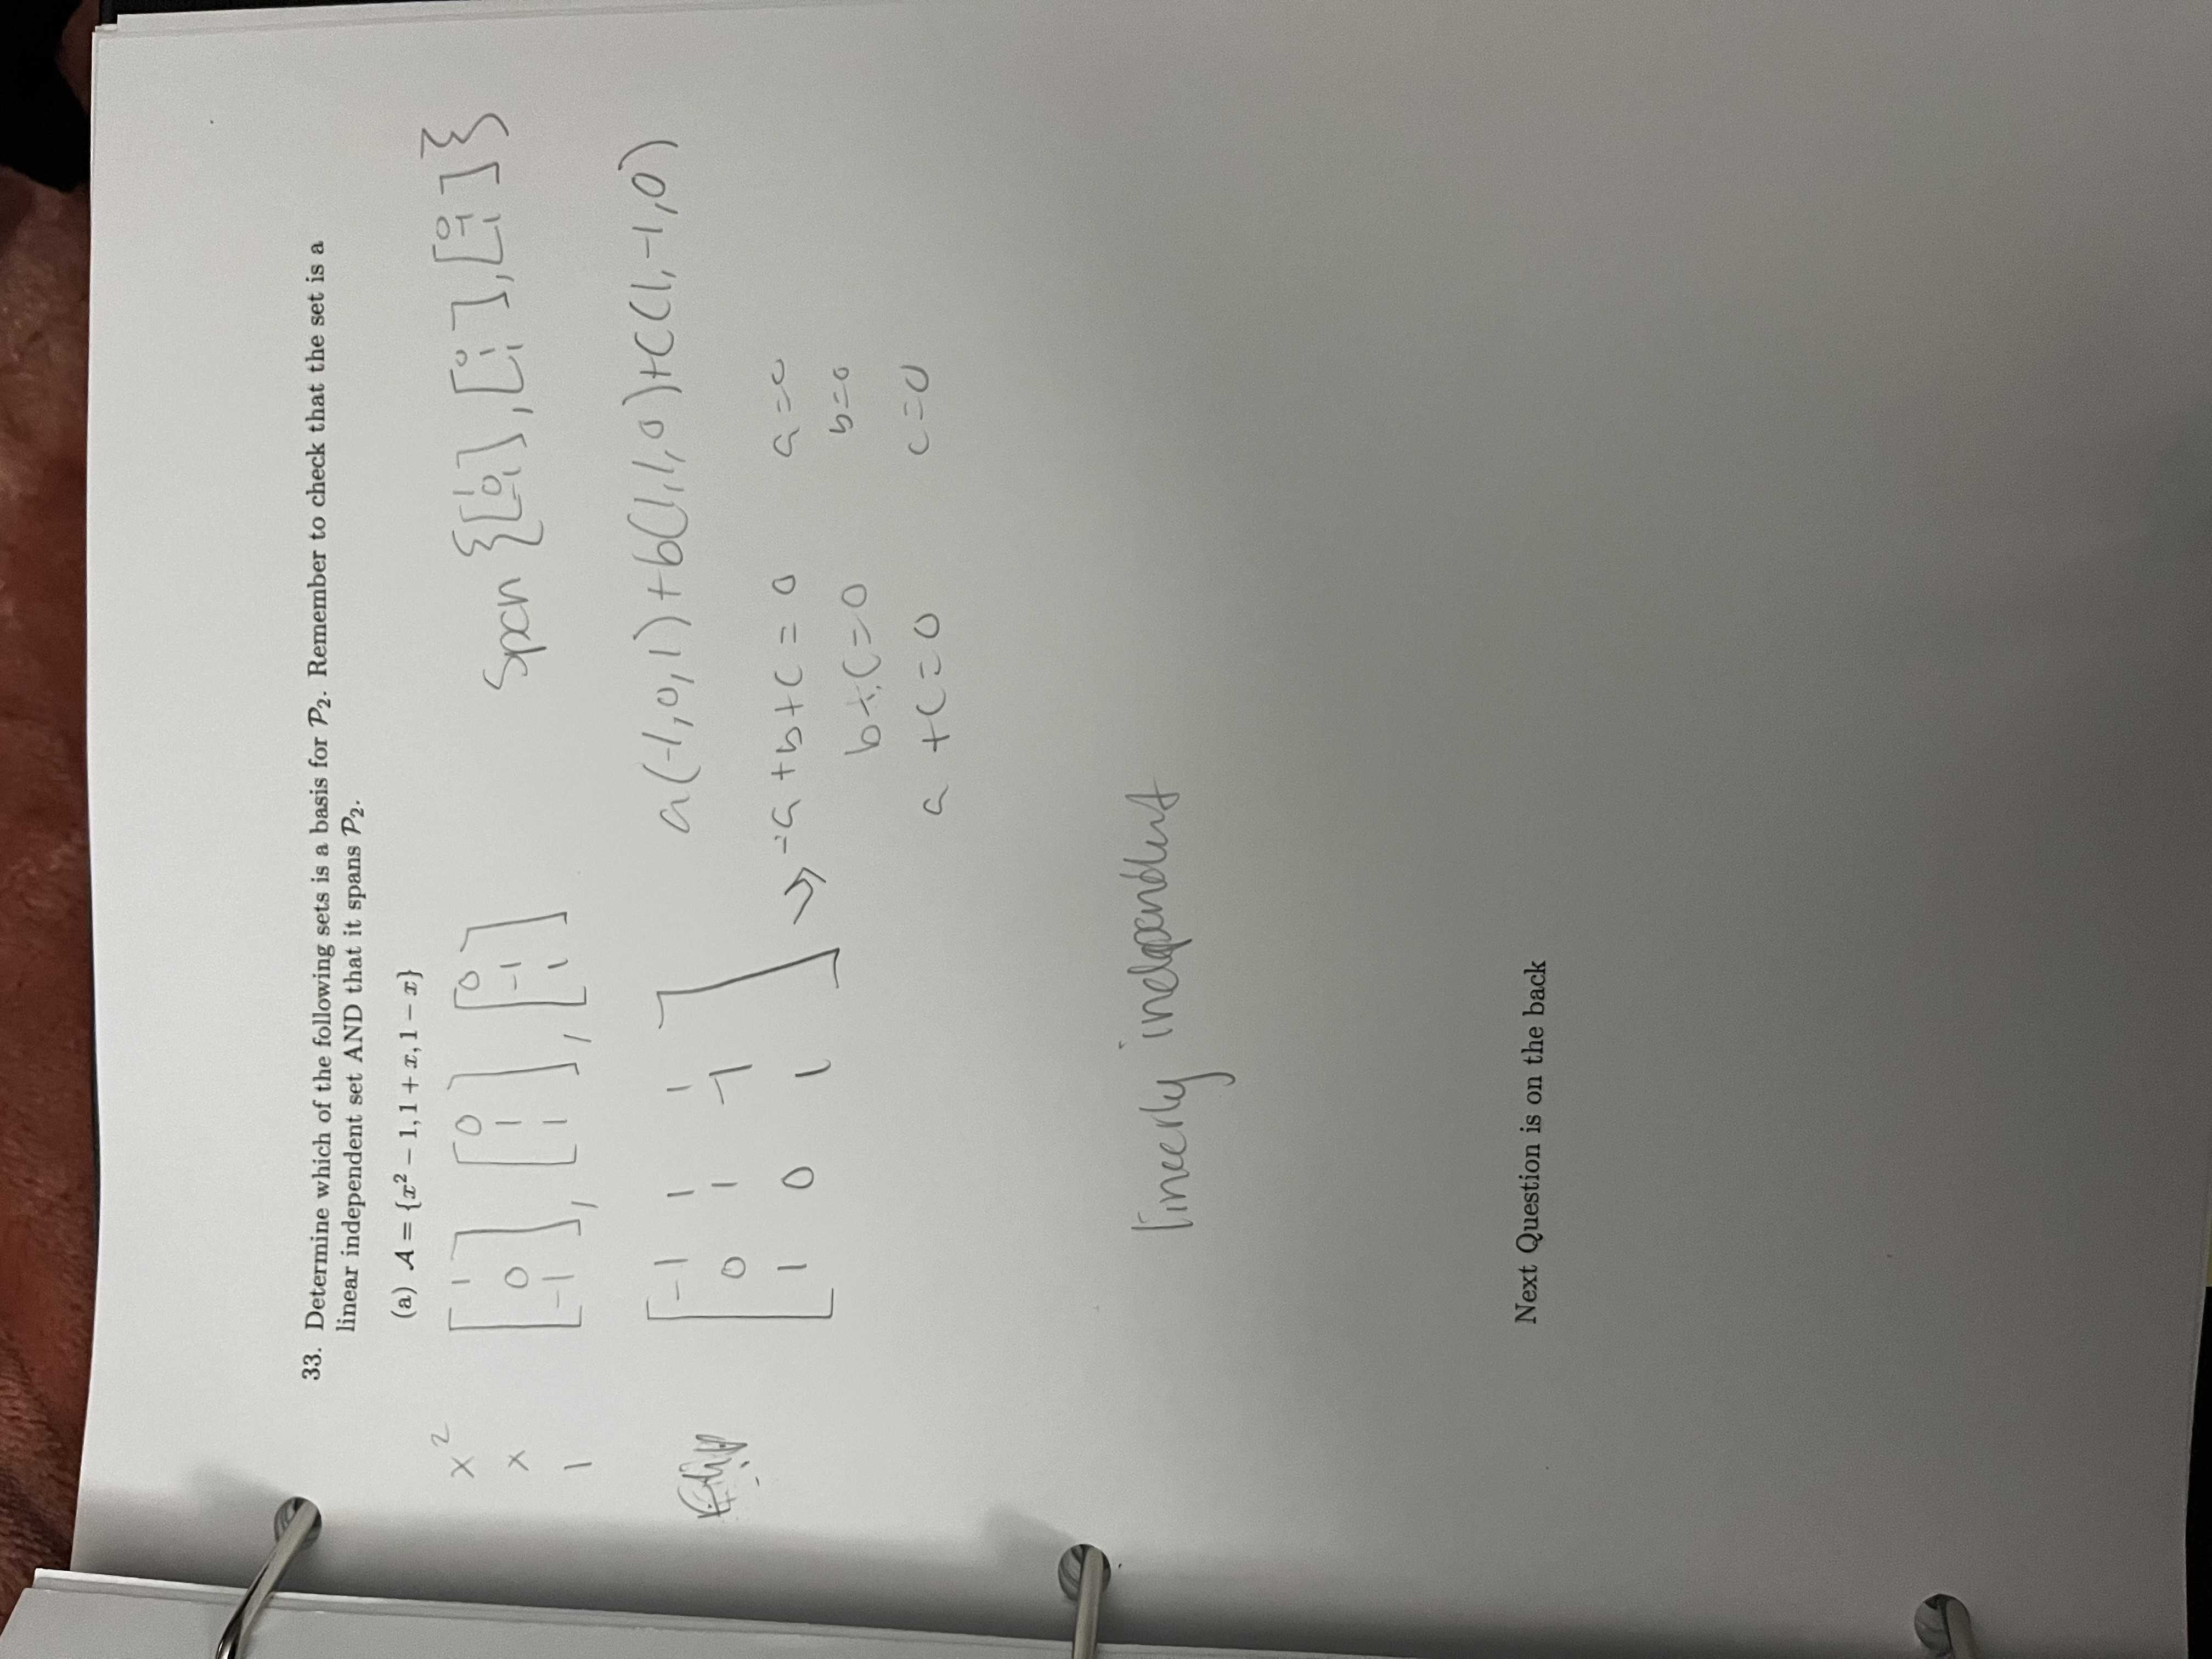 33. Determine which of the following sets is a basis for P₂. Remember to check that the set is a
linear independent set AND that it spans P₂.
(a) A = {x² − 1, 1 + x, 1 − x}
x² [1 [0 [0
x 0 1 -1
1 -1], 1], 1]
Span {[1 0 -1], [0 1 1], [0 -1 1]}
[-1 1 1
0 1 -1
1 0 1]
a(-1,0,1)+b(1,1,0)+c(1,-1,0)
-a+b+c=0 a=0
b+c=0 b=0
a +c=0 c=0
linearly independent
Next Question is on the back